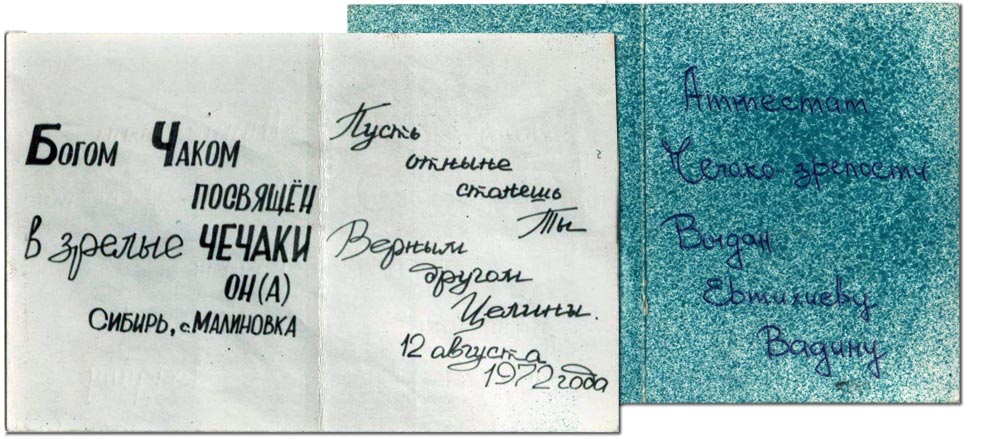 Богом Чаком
посвящён
в зрелые чечаки
он(а)
Сибирь, с. Малиновка
Пусть
отныне
станешь
Ты
Верным
другом
Целины.
12 августа
1972 года
Аттестат
Чечако-зрелости
Выдан
Евтихиеву
Вадиму